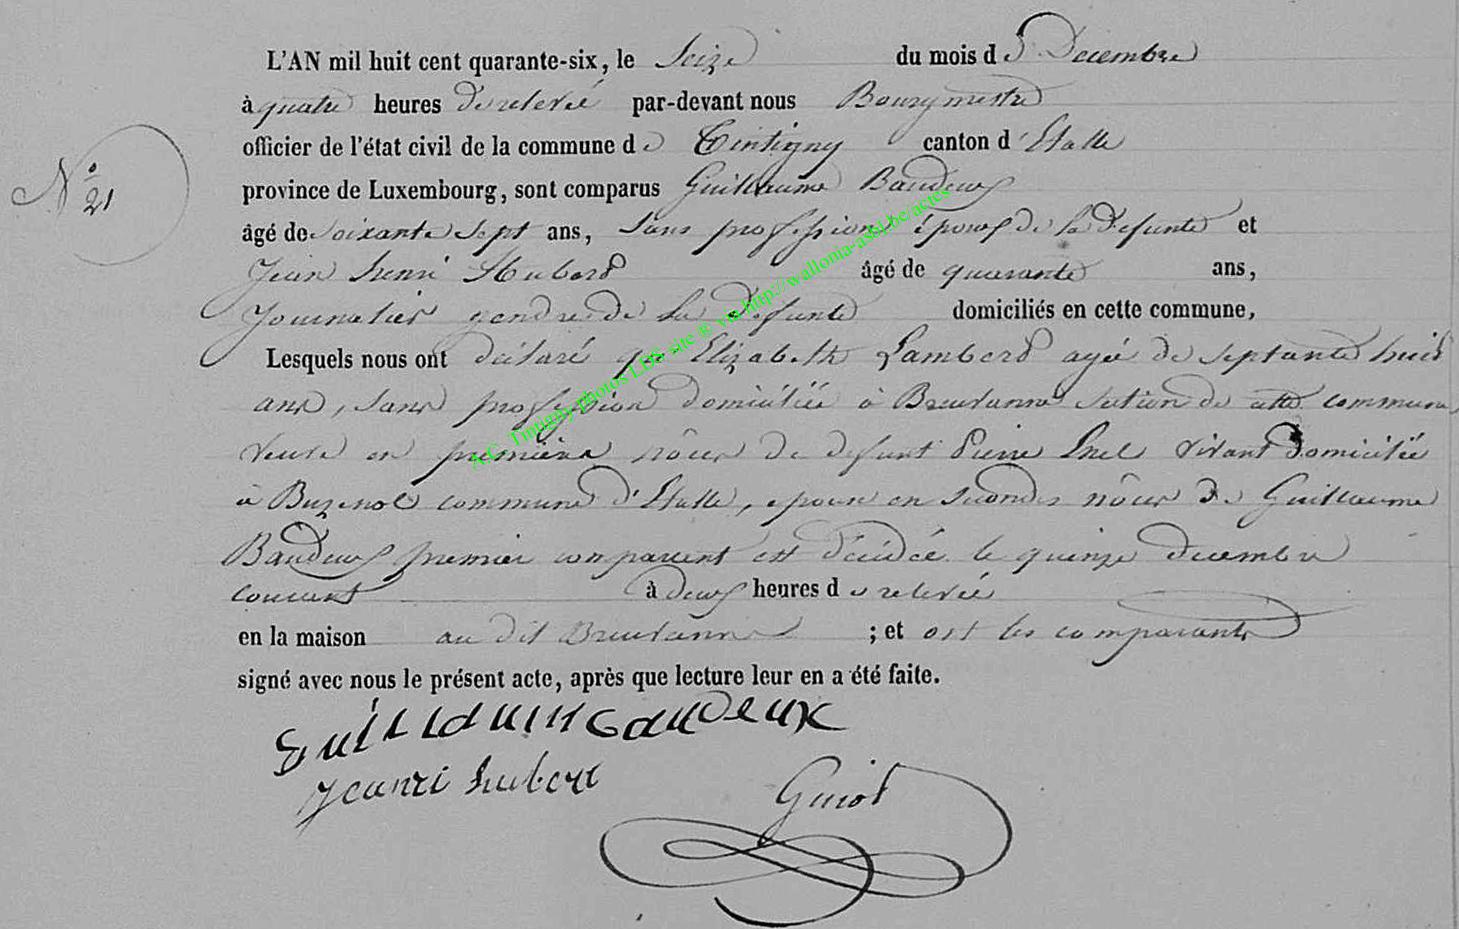 L'AN mil huit cent quarante-six, le Seize du mois de Decembre
à quatre heures de relevée par-devant nous Bourgmestre
officier de l'état civil de la commune de Tintigny canton d'Etalle
N° 21
province de Luxembourg, sont comparus Guillaume Baudeux
âgé de soixante sept ans, sans profession époux de la defunte et
Jean henri Hubert âgé de quarante ans,
Journalier gendre de la defunte domiciliés en cette commune,
Lesquels nous ont déclaré que Elizabeth Lambert agée de septante huit
ans, sans profession domiciliée à Breuvanne section de cette commune
veuve en premiere nôces de defunt Pierre vivant domiciliée
à Buzenol commune d'Etalle, epouse en secondes nôces de Guillaume
Baudeux premier comparent est décédée le quinze decembre
courant à deux heures de relevée
en la maison au dit Breuvanne ; et ont les comparants
signé avec nous le présent acte, après que lecture leur en a été faite.
Guillaume Baudeux
hubert
Guiot
A.C. Tintigny photos LDS site ® via http://wallonia-asbl.be/actes